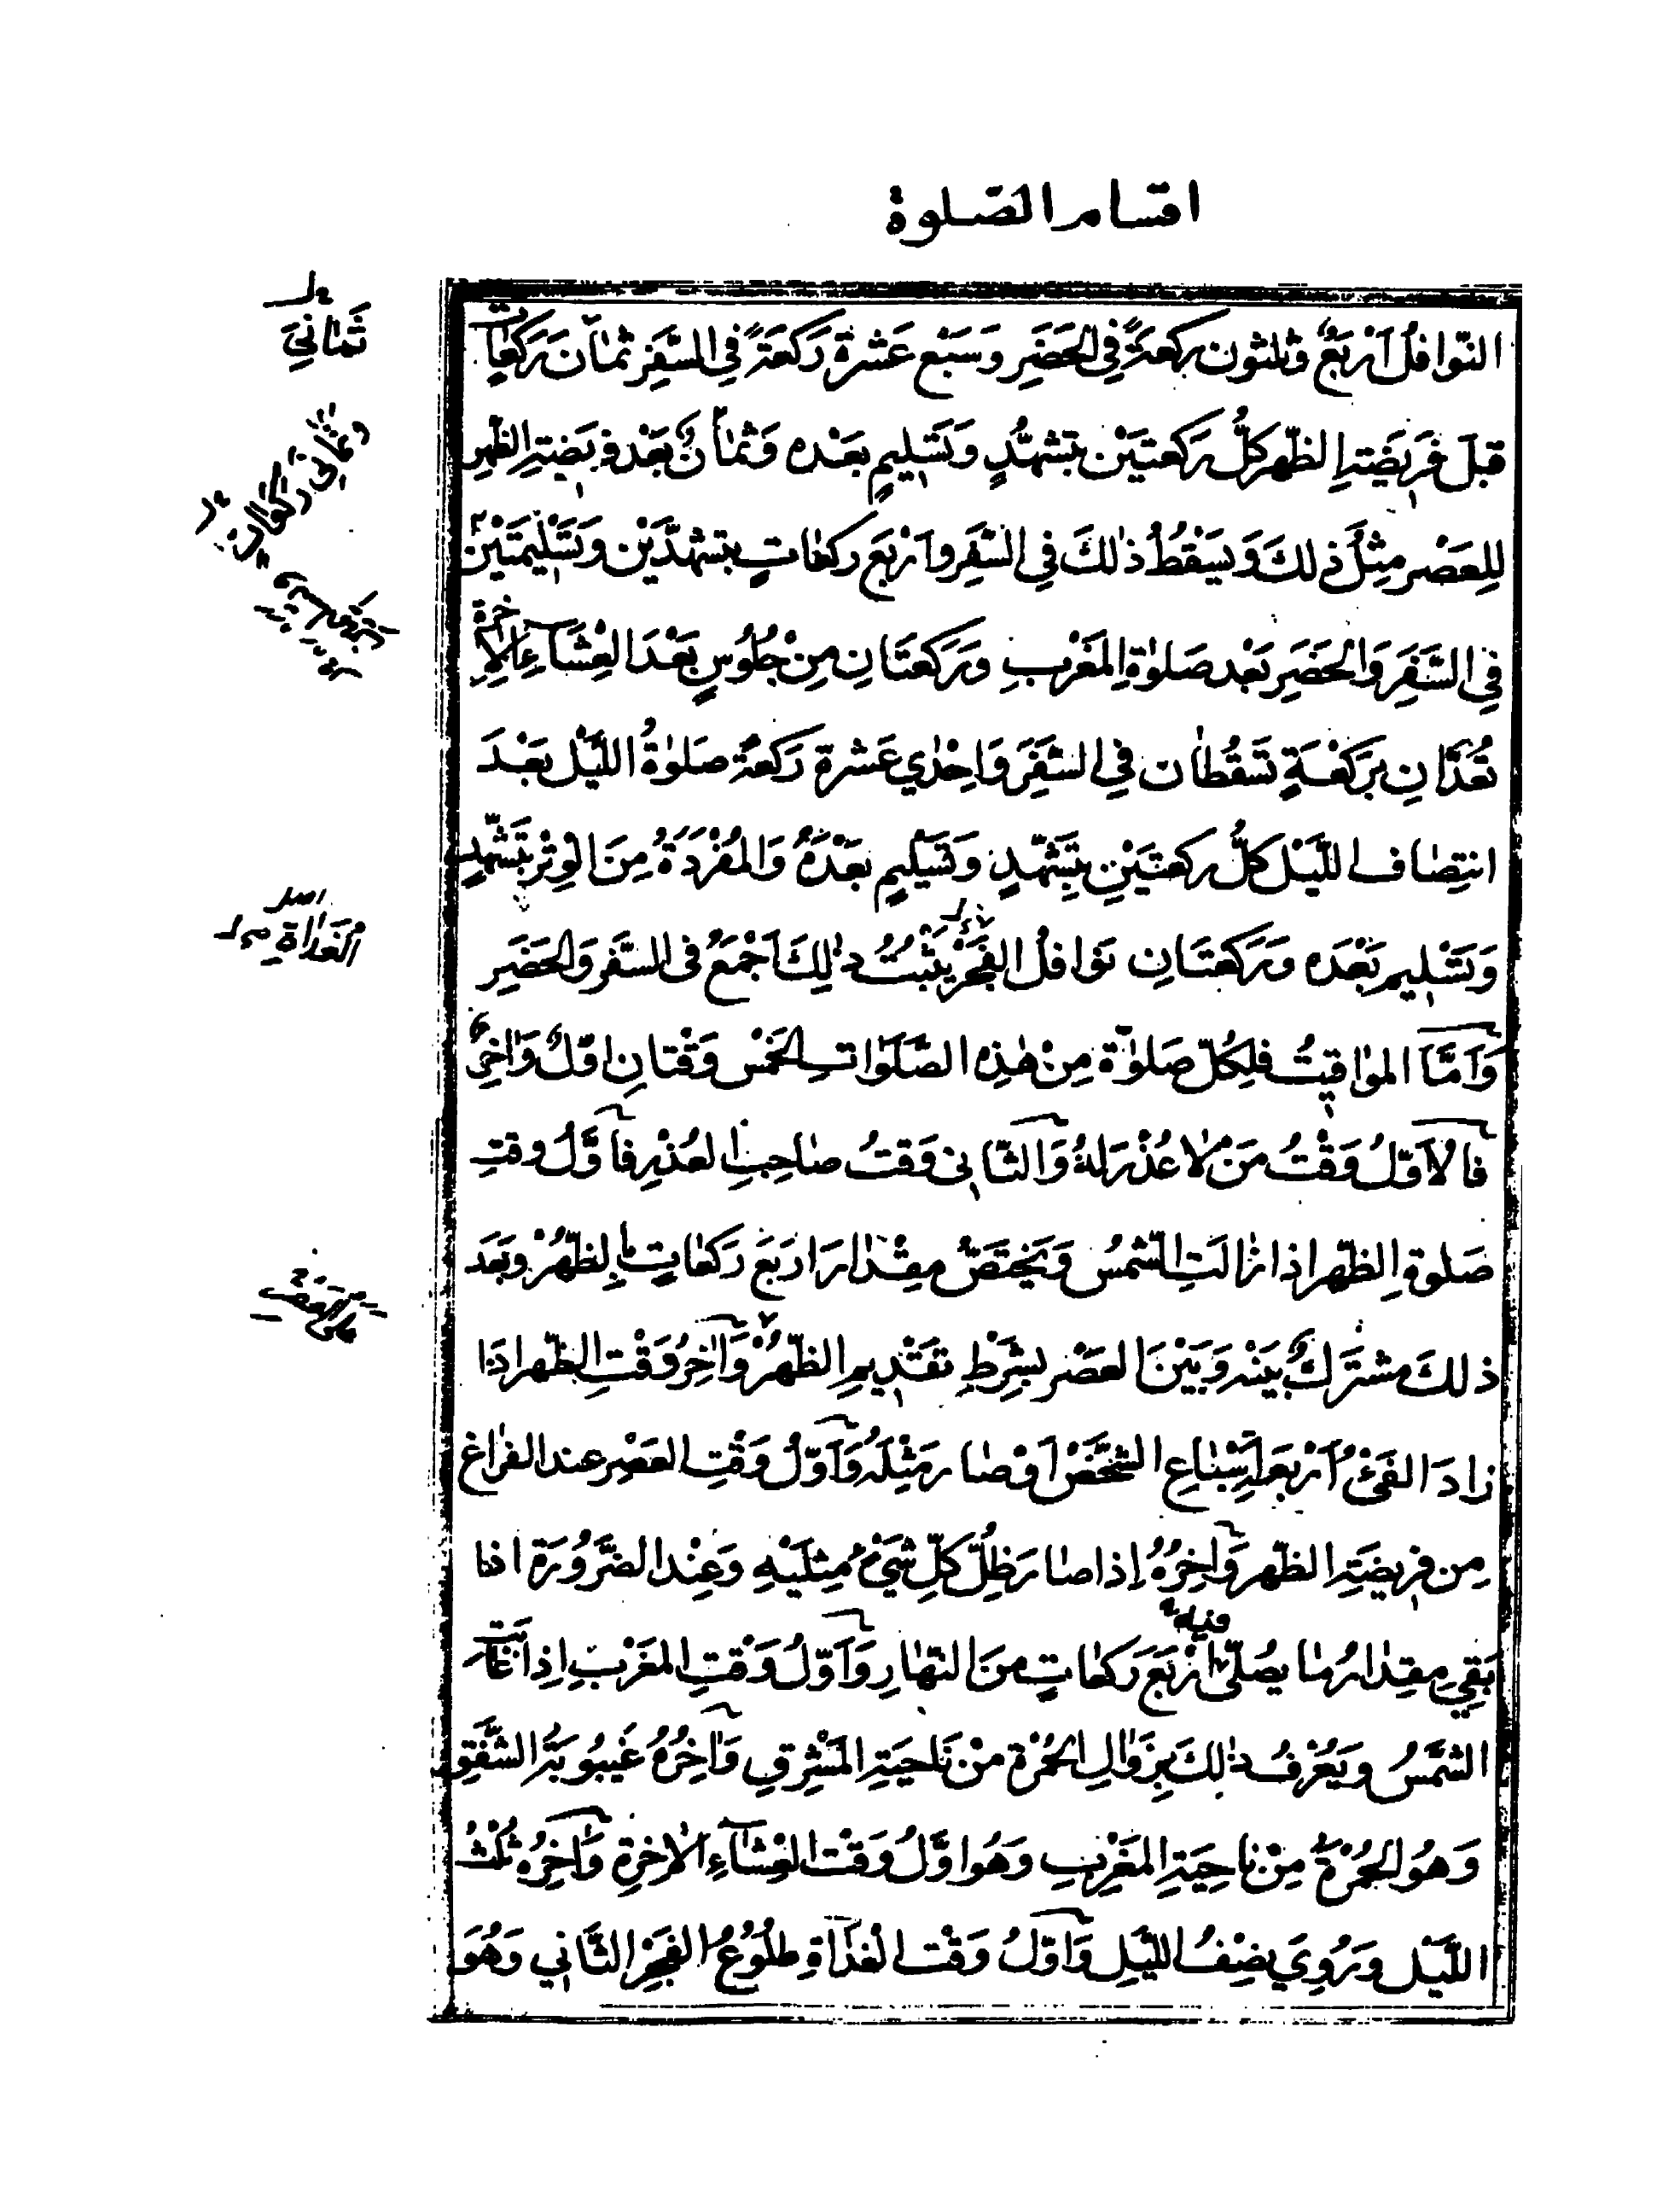 اقسام الصّلوة
النّوافل اَرْبَعٌ وثلثون ركعةً فِي الحَضَرِ وَسَبْع عَشرة رَكعَةً فِي السَّفَرِ ثَمٰان رَكَعٰاتٍ
قبلَ فَرِيضَةِ الظّهرِ كلُّ رَكعتَيْن بتَشهّدٍ وَتَسْلِيمٍ بعَدْه وَثمٰانٌ بَعْد فريضَةِ الظّهرِ
لِلعَصْر مِثلُ ذلكَ وَيَسْقُطُ ذٰلكَ فِي السَّفَرِ وَاَرْبَع ركعٰاتٍ بتشهدّيْن وَتَسْلِيمَتَيْن
فِي السَّفَرِ وَالحَضَرِ بَعْد صَلوٰةِ المَغْربِ وَرَكعَتَانِ مِنْ جُلُوسٍ بَعْدَ العِشَاءِ الاٰخِرَةِ
تُعَدّانِ برَكعَةٍ تَسْقُطٰان فِي السَّفَرِ وَاِحْدٰي عَشرة رَكعَة صَلوٰةُ اللَّيْل بَعْدَ
انتِصٰاف اللّيْل كلُّ ركعتَيْنِ بتَشهّدٍ وَتَسْلِيمٍ بَعْدَهُ وَالمُفْرَدَةُ مِنَ الوِتْر بتَشَهّدٍ
وَتَسْلِيم بَعْدَه وَرَكعَتَانِ نوَافلُ الفَجْرِ يَثْبُتُ ذٰلِكَ اَجْمَعُ فى السّفَر وَالحَضَرِ
وَاَمَّا الموٰاقِيتُ فلِكُلّ صَلوٰة مِنْ هٰذِه الصَّلَوٰاتِ الخَمْس وَقْتانِ اوّلٌ وَاٰخِرٌ
فالاَوّلُ وَقْتُ مَنْ لاٰ عُذْرَ لهُ وَالثّانى وَقتُ صٰاحِبِ العُذْرِ فاَوَّلُ وقتِ
صَلوةِ الظّهر اذا زٰالَتِ الشّمسُ وَيَختَصّ مِقْدٰار اَربَعَ رَكعٰاتٍ بالِظّهْر وَبَعَد
ذلكَ مشتَرَكٌ بَينَه وَبَيْنَ العصْرِ بشَرْطِ تقَدِيمِ الظّهْرُ وَاٰخِرُ وَقْتِ الظّهر اِذا
زٰادَ الفَيْ ءُ اَرْبَعَة اَسْبٰاعِ الشّخْصْ اَوْ صٰار مَثِلَهُ وَاَوّلُ وَقْتِ العَصْرِ عند الفرٰاغِ
مِن فريضَةِ الظّهر وَاٰخِرُهُ اِذا صٰارَ ظِلّ كلِّ شَيْءٍ مِثلَيْهِ وَعِنْدَ الضَّرُورَة اذٰا
بَقِيَ مِقدٰارُ مٰا يصُلّى فيه اَرْبَعَ رَكعٰاتٍ مِنَ النّهٰارِ وَاَوّلُ وَقْتِ المَغْرِبِ اِذا غٰابَتْ
الشمَّسُ وَيُعْرَفُ ذٰلكَ بِزَوٰالِ الحُمْرَةِ مِنْ نَاحيَةِ المَشْرِقِ وَاٰخِرُهُ غَيبُوبَةُ الشَّفَقِ
وَهُوَ الحُمْرَةُ مِنْ ناحِيَةِ المَغْرِبِ وَهُوَ اوَّلُ وَقْت العِشٰاءِ الاٰخِرَةِ وَاٰخِرُهُ ثلُثُ
اللَّيْل وَرُوِيَ نِصْفُ اللَّيْلِ وَاَوّلُ وَقْت الغَدٰاةِ طُلُوعُ الفَجْرِ الثَّانِي وَهُوَ
ثَمٰانِيَ
وثمانى ركعات
الغَدٰاةِ